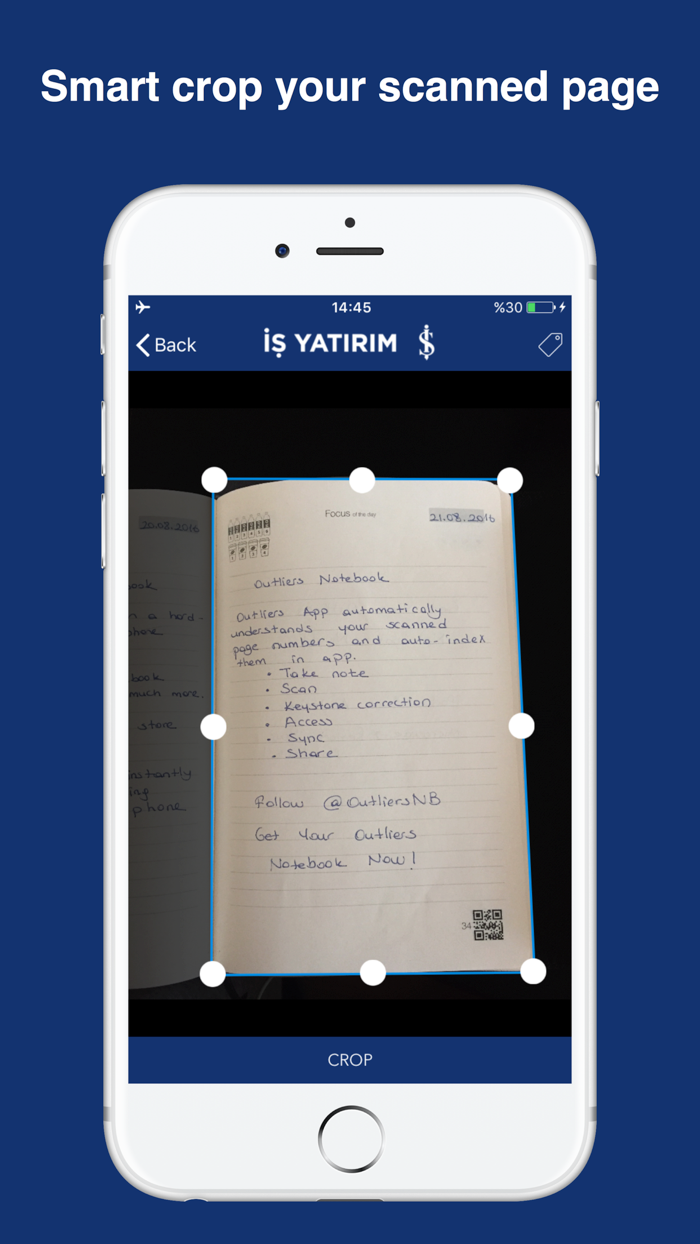 Smart crop your scanned page
14:45
%30
Back
İŞ YATIRIM
20.08.2016
Focus of the day
21.08.2016
ook
Outliers Notebook
n a hard-
phone
Outliers App automatically
understands your scanned
page numbers and auto-index
them in app.
• Take note
book
• Scan
much more.
• Keystone correction
store
• Access
• Sync
• Share
instantly
ing
phone
Follow @OutliersNB
Get Your Outliers
Notebook Now!
34
CROP